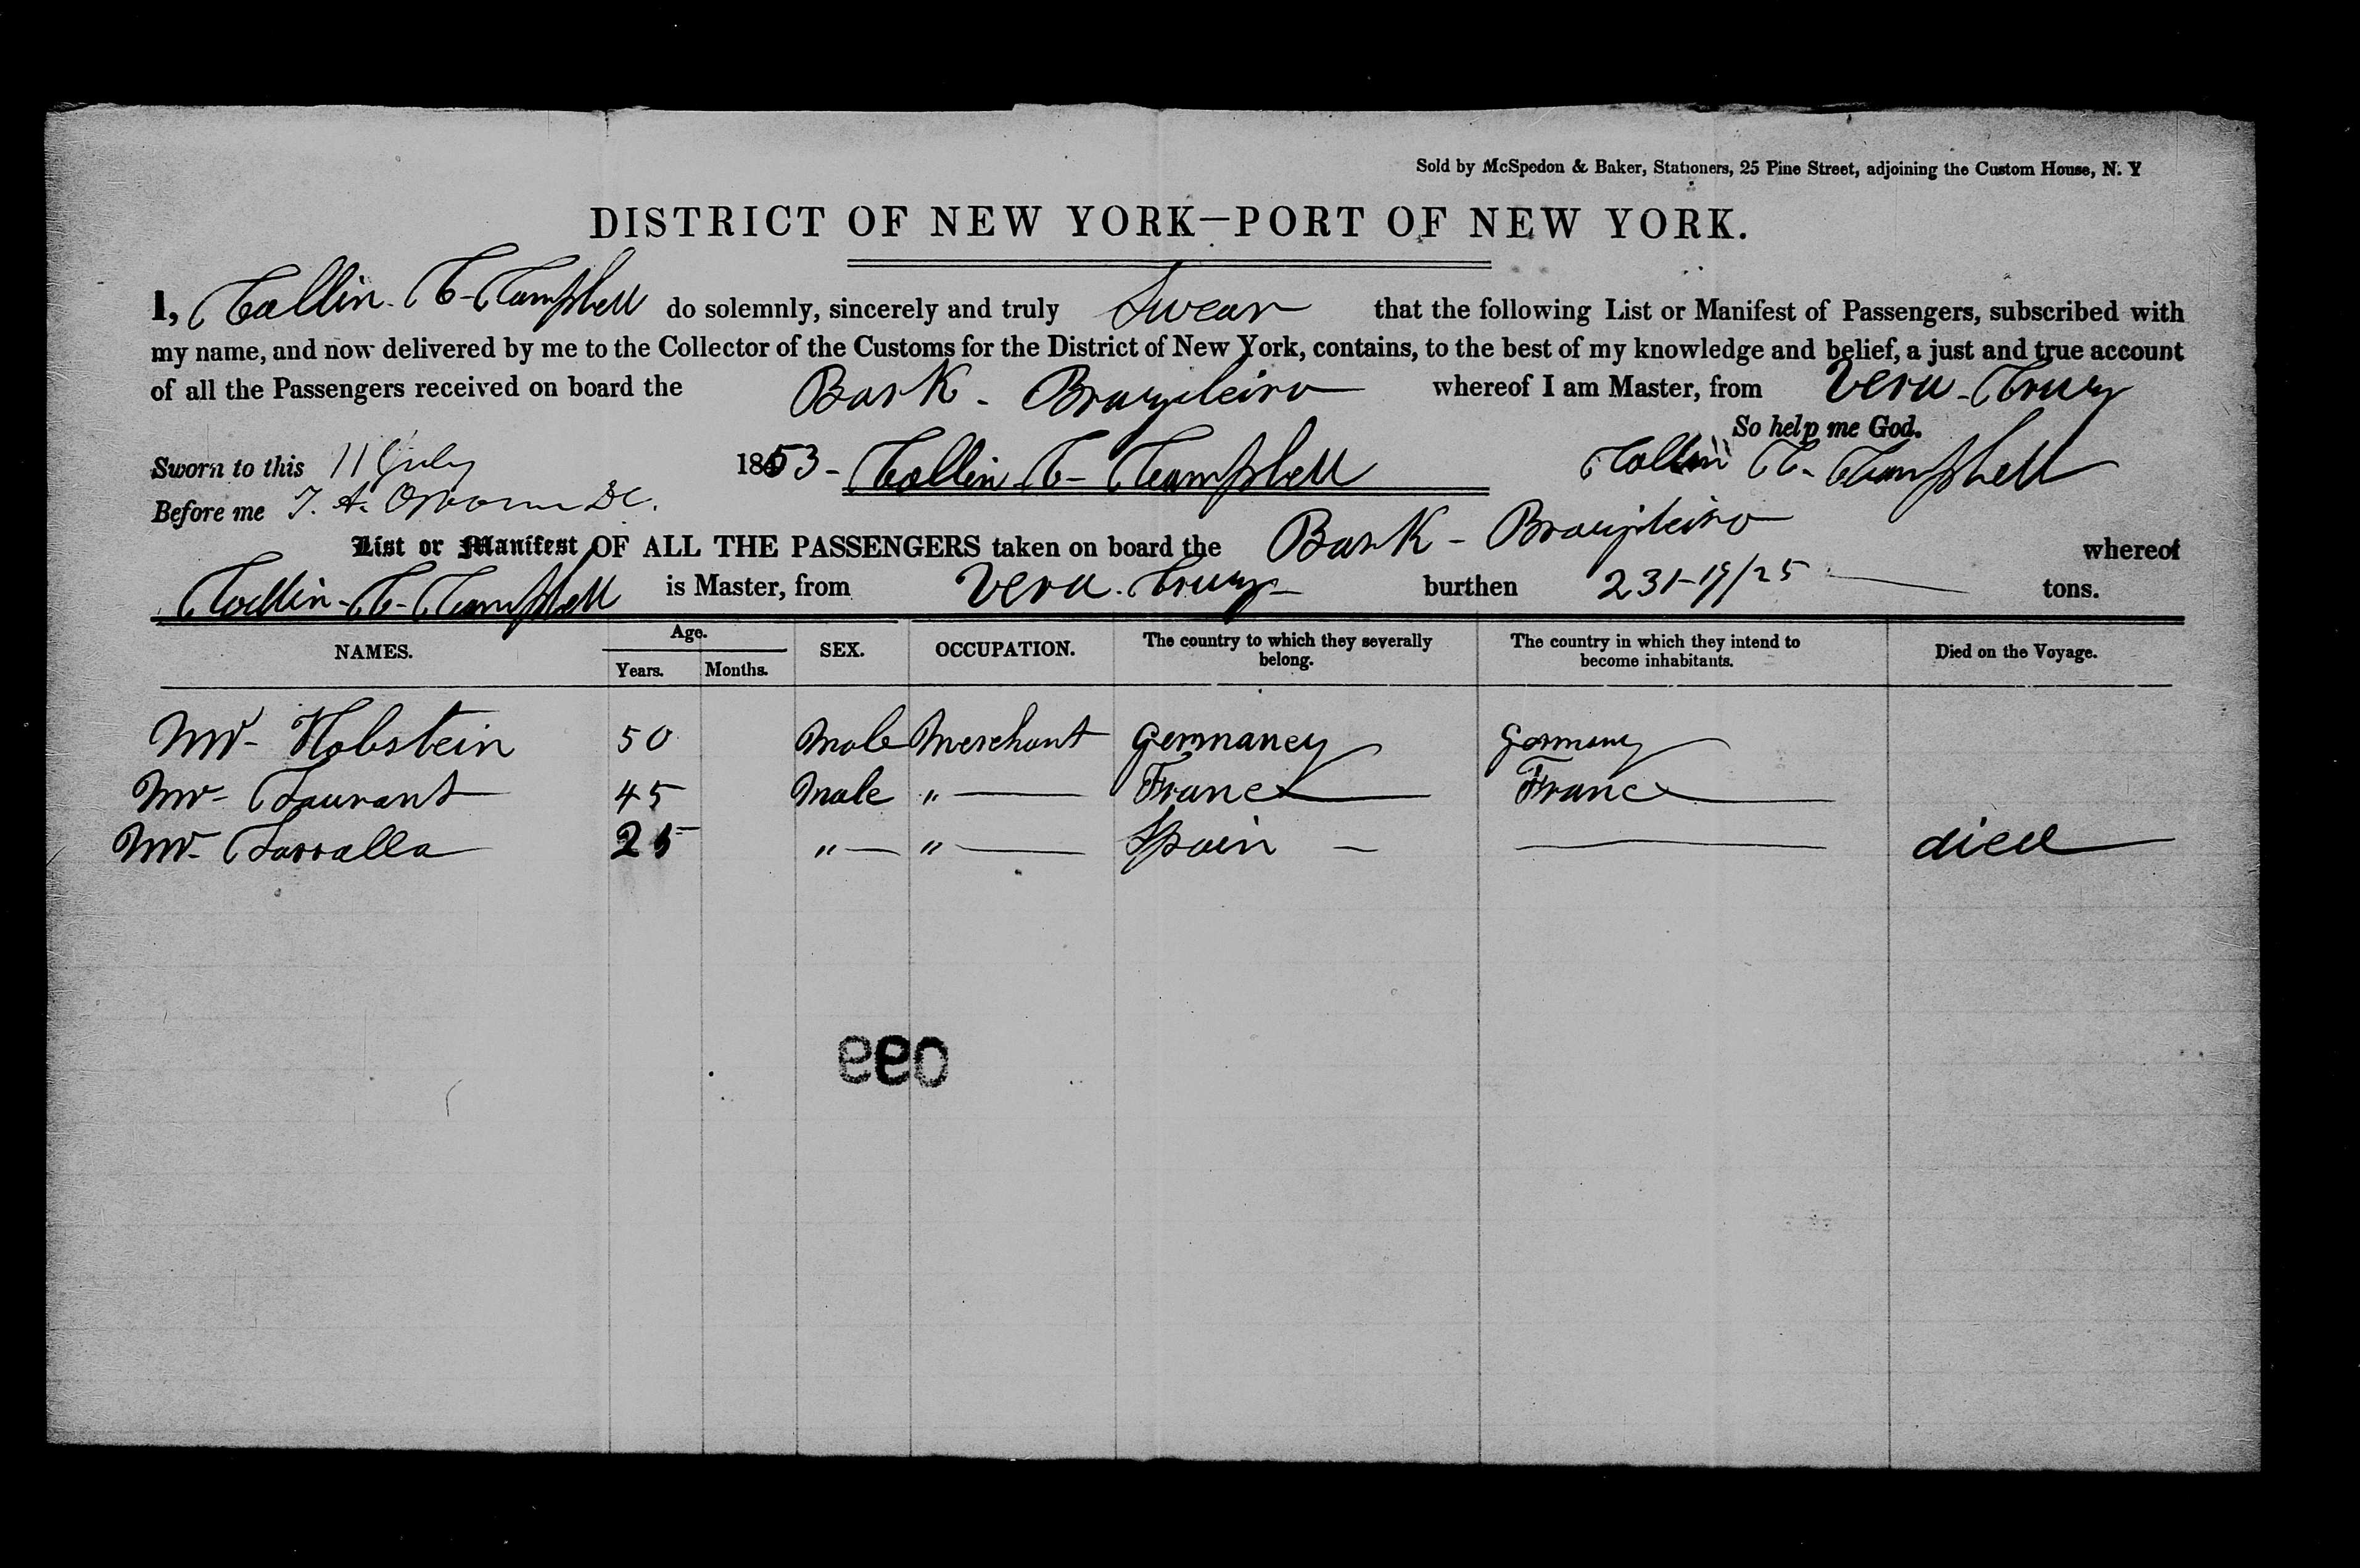 Sold by McSpedon & Baker, Stationers, 25 Pine Street, adjoining the Custom House, N. Y
DISTRICT OF NEW YORK—PORT OF NEW YORK.
I, Collin. C- Campbell do solemnly, sincerely and truly Swear that the following List or Manifest of Passengers, subscribed with
my name, and now delivered by me to the Collector of the Customs for the District of New York, contains, to the best of my knowledge and belief, a just and true account
of all the Passengers received on board the Bark - Brazileiro whereof I am Master, from Vera - Cruz
So help me God.
Sworn to this 11 July 1853 - Collin C- Campbell Collin C- Campbell
Before me T. A. Osborn DC.
List or Manifest OF ALL THE PASSENGERS taken on board the Bark - Brazileiro whereof
Collin - C - Campbell is Master, from Vera. Cruz - burthen 231-19/25 tons.
NAMES. Age. SEX. OCCUPATION. The country to which they severally belong. The country in which they intend to become inhabitants. Died on the Voyage.
Years. Months.
Mr- Hobstein 50 Male Merchant Germaney Germany
Mr- Laurant 45 Male " France France
Mr- Larralla 25 " " Spain — died
099